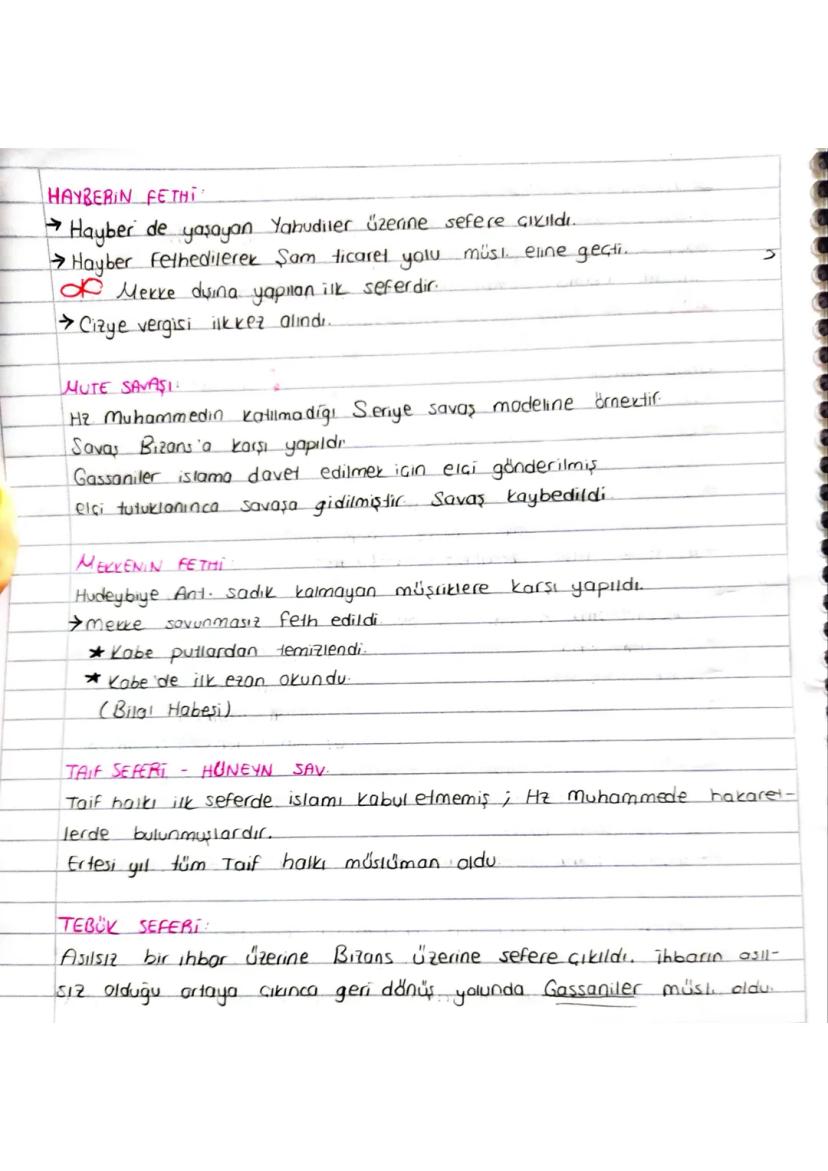 HAYBERİN FETHİ:
→ Hayber'de yaşayan Yahudiler üzerine sefere çıkıldı.
→ Hayber fethedilerek Şam ticaret yolu müsl. eline geçti.
Mekke dışına yapılan ilk seferdir.
→ Cizye vergisi ilk kez alındı.
MUTE SAVAŞI:
Hz Muhammedin katılmadığı Seriye savaş modeline örnektir.
Savaş Bizans'a karşı yapıldı
Gassaniler islama davet edilmek için elçi gönderilmiş
elçi tutuklanınca savaşa gidilmiştir. Savaş kaybedildi.
MEKKENİN FETHİ:
Hudeybiye Ant. sadık kalmayan müşriklere karşı yapıldı.
→ Mekke savunmasız feth edildi.
★ Kabe putlardan temizlendi.
★ Kabe'de ilk ezan okundu.
(Bilal Habeşi)
TAİF SEFERİ - HÜNEYN SAV.
Taif halkı ilk seferde islamı kabul etmemiş ; Hz Muhammede hakaret-
lerde bulunmuşlardır.
Ertesi yıl tüm Taif halkı müslüman oldu.
TEBÜK SEFERİ:
Asılsız bir ihbar üzerine Bizans üzerine sefere çıkıldı. İhbarın asıl-
sız olduğu ortaya çıkınca geri dönüş yolunda Gassaniler müsl. oldu.